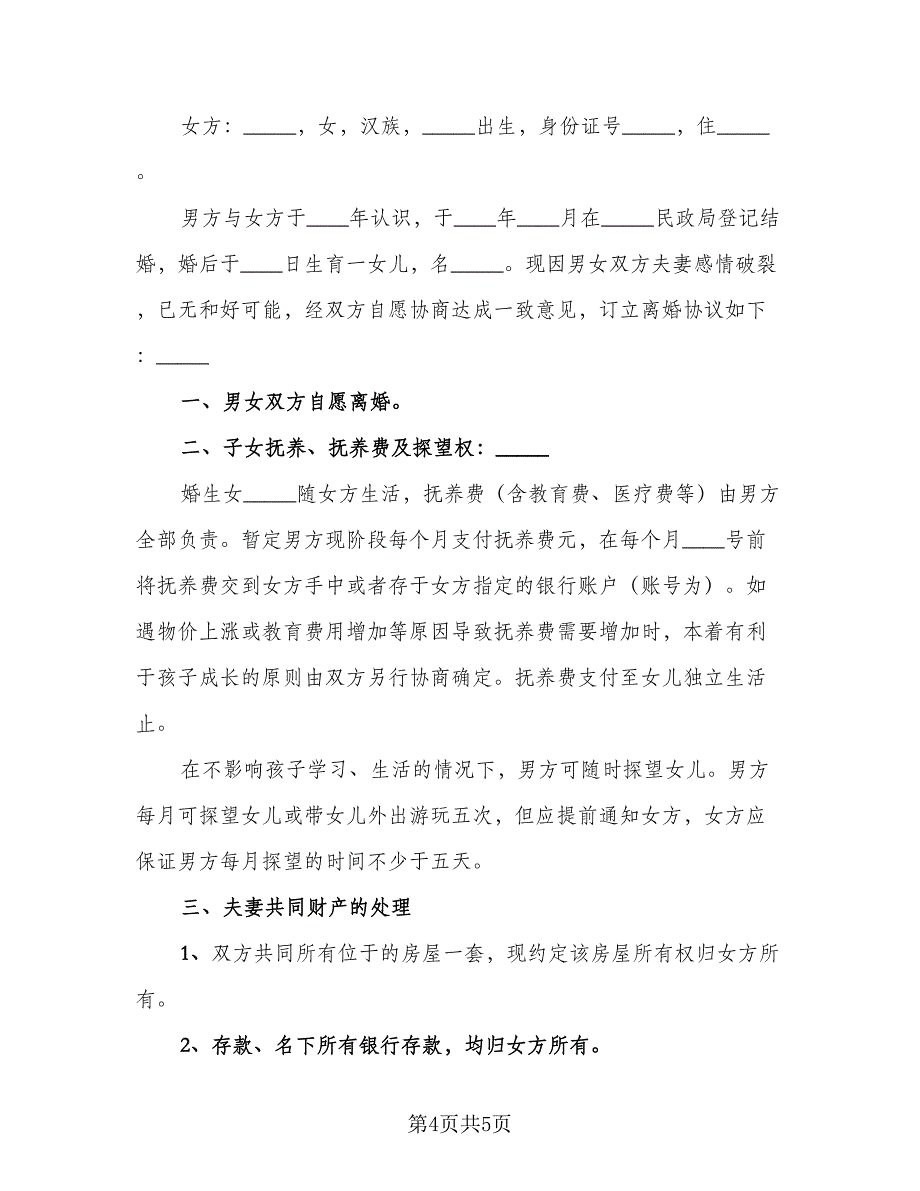 女方：_____，女，汉族，_____出生，身份证号_____，住_____
。
男方与女方于____年认识，于____年____月在_____民政局登记结
婚，婚后于____日生育一女儿，名_____。现因男女双方夫妻感情破裂
，已无和好可能，经双方自愿协商达成一致意见，订立离婚协议如下
：_____
一、男女双方自愿离婚。
二、子女抚养、抚养费及探望权：_____
婚生女_____随女方生活，抚养费（含教育费、医疗费等）由男方
全部负责。暂定男方现阶段每个月支付抚养费元，在每个月____号前
将抚养费交到女方手中或者存于女方指定的银行账户（账号为）。如
遇物价上涨或教育费用增加等原因导致抚养费需要增加时，本着有利
于孩子成长的原则由双方另行协商确定。抚养费支付至女儿独立生活
止。
在不影响孩子学习、生活的情况下，男方可随时探望女儿。男方
每月可探望女儿或带女儿外出游玩五次，但应提前通知女方，女方应
保证男方每月探望的时间不少于五天。
三、夫妻共同财产的处理
1、双方共同所有位于的房屋一套，现约定该房屋所有权归女方所
有。
2、存款、名下所有银行存款，均归女方所有。
第4页共5页